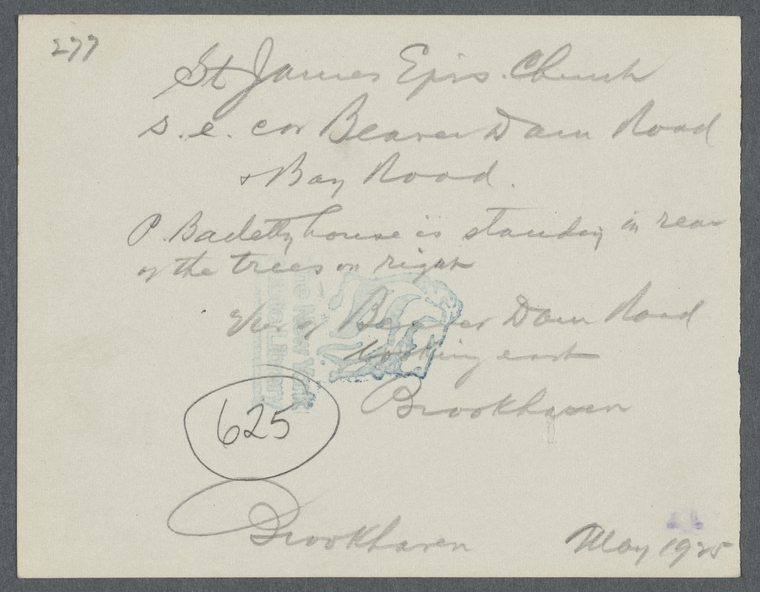 277
St James Epis. Church
s. e. cor Beaver Dam Road
& Bay Road.
P. Badetty house is standing in rear
of the trees on right
View of Beaver Dam Road
looking east
Brookhaven
625
Brookhaven May 1925
The New York
Public Library